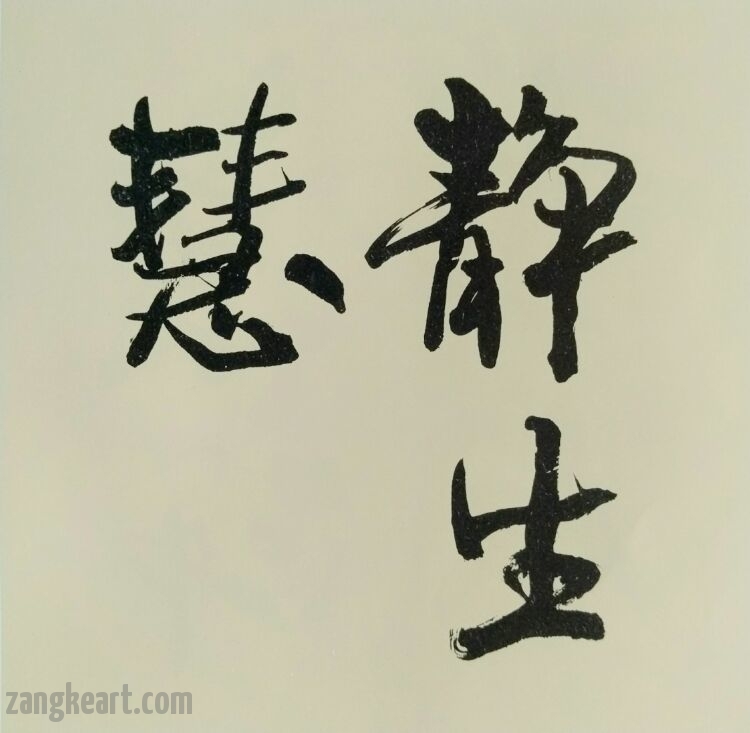 静生
慧
zangkeart.com